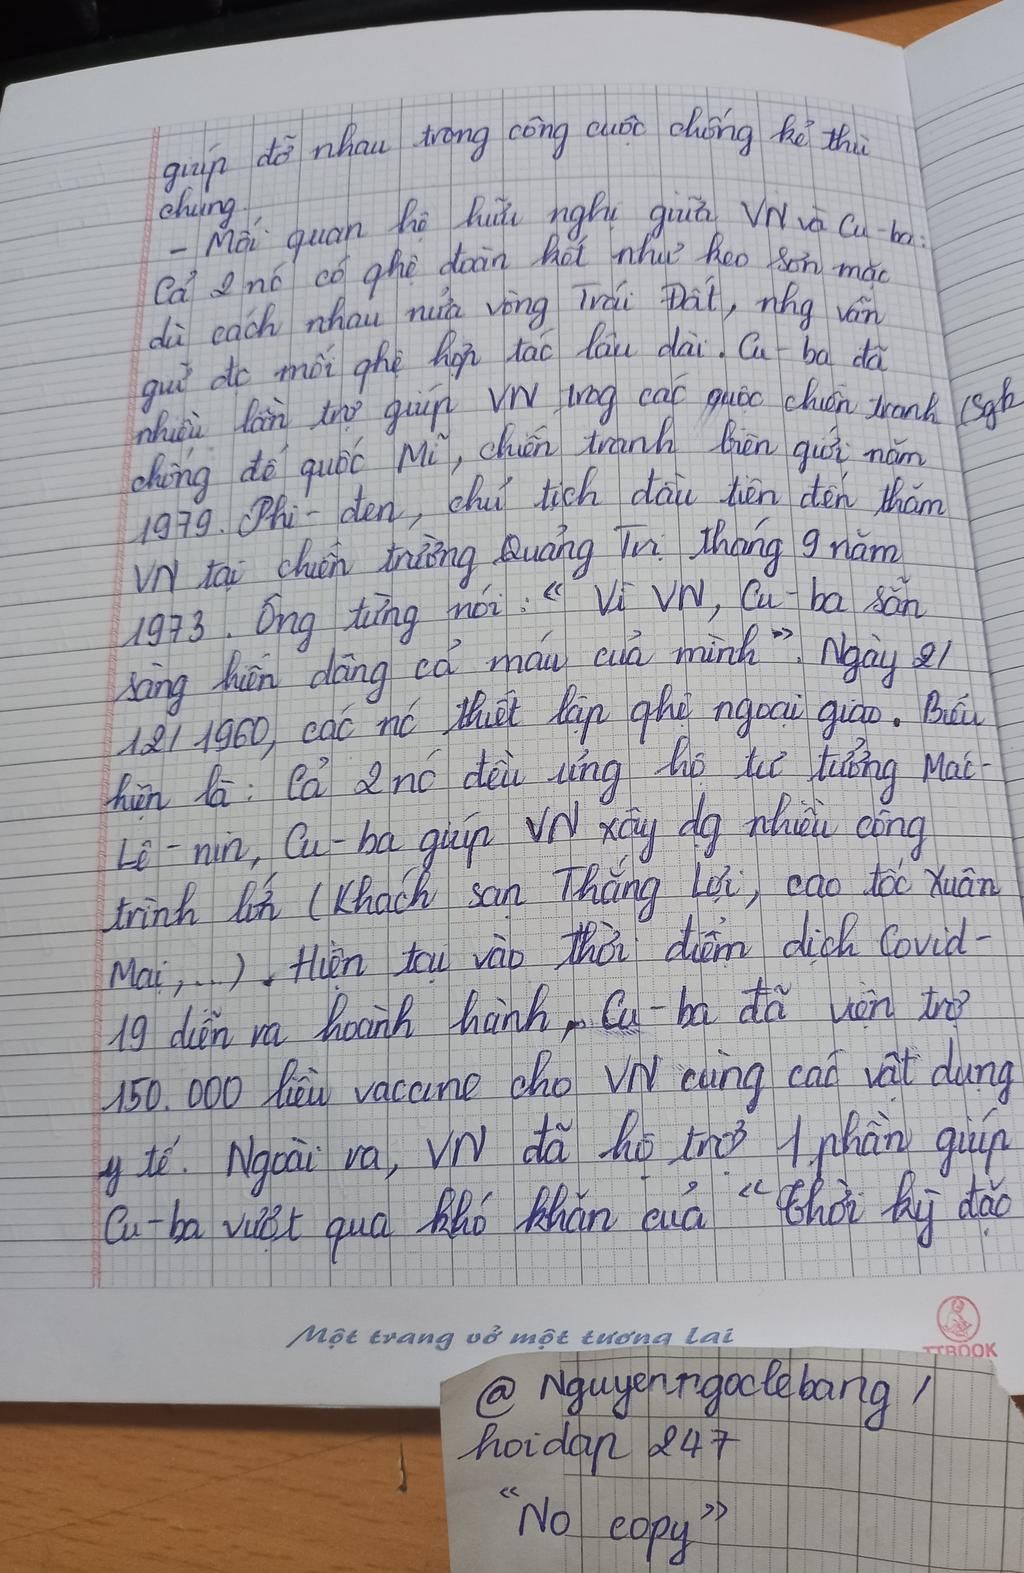 giúp đỡ nhau trong công cuộc chống kẻ thù
chung.
- Mối quan hệ hữu nghị giữa VN và Cu-ba:
Cả 2 nc có qhệ đoàn kết như keo sơn mặc
dù cách nhau nửa vòng Trái Đất, nhg vẫn
giữ đc mối qhệ hợp tác lâu dài. Cu-ba đã
nhiều lần trợ giúp VN trog các quộc chiến tranh (Sgk
chống đế quốc Mĩ, chiến tranh biên giới năm
1979. Phi-đen, chủ tịch đầu tiên đến thăm
VN tại chiến trường Quảng Trị tháng 9 năm
1973. Ông từng nói: “Vì VN, Cu-ba sẵn
sàng hiến dâng cả máu của mình”. Ngày 2/
12/1960, các nc thiết lập qhệ ngoại giao. Biểu
hiện là: Cả 2 nc đều ủng hộ tư tưởng Mác-
Lê-nin, Cu-ba giúp VN xây dg nhiều công
trình lớn (Khách sạn Thắng Lợi, cao tốc Xuân
Mai,...). Hiện tại vào thời điểm dịch Covid-
19 diễn ra hoành hành, Cu-ba đã viện trợ
150.000 liều vaccine cho VN cùng các vật dụng
y tế. Ngoài ra, VN đã hỗ trợ 1 phần giúp
Cu-ba vượt qua khó khăn của “thời kỳ đặc
Một trang vở một tương lai
TTBOOK
@ Nguyenngoclebang /
hoidap 247
“No copy”